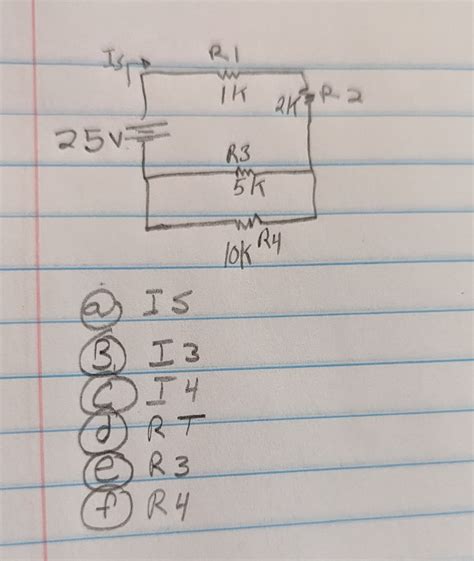 Is R1
1K
2K R2
25V
R3
5K
10K R4
a I S
B. I 3
C I 4
d R T
e R 3
f R 4